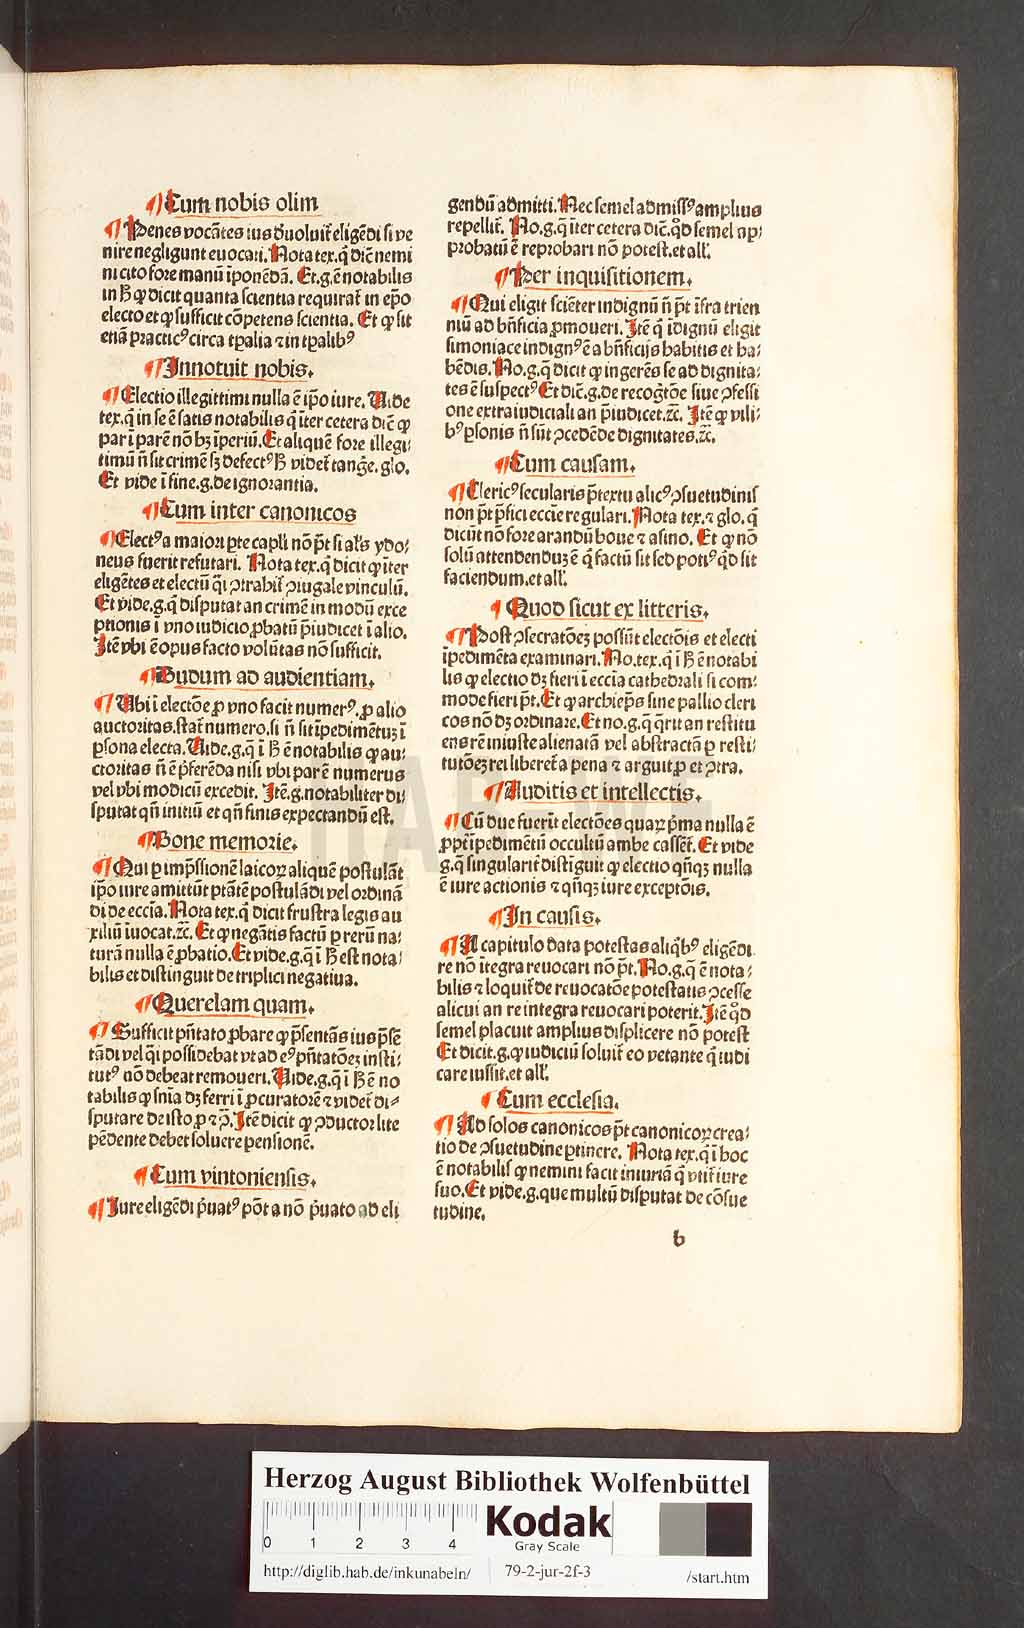 ¶ Cum nobis olim
¶ Penes vocãtes ius deuoluit᷑ eligẽdi si ve
nire negligunt euocari. Nota tex. q̃ dic̃ nemi
ni cito fore manũ ĩponẽdã. Et .g. ẽ notabilis
in hͦ ꝙ dicit quanta scientia requirat᷑ in ep̃o
electo et ꝙ sufficit cõpetens scientia. Et ꝙ sit
etiã practicꝰ circa tp̃alia ⁊ in tp̃alibꝰ
¶ Innotuit nobis.
¶ Electio illegittimi nulla ẽ ip̃o iure. Vide
tex. q̃ in se ẽ satis notabilis q̃ iter cetera dic̃ ꝙ
par i parẽ nõ hꝫ ĩperiũ. Et aliquẽ fore illegi⸗
timũ ñ sit crimẽ sꝫ defectꝰ hͦ videt᷑ tangẽ. glo.
Et vide ĩ fine .g. de ignorantia.
¶ Cum inter canonicos
¶ Electꝰ a maiori ꝑte capl̃i nõ p̃t si al̃s ydo⸗
neus fuerit refutari. Nota tex. q̃ dicit ꝙ iter
eligẽtes et electũ q̃i ꝯtrahit᷑ ꝯiugale vinculũ.
Et vide .g. q̃ disputat an crimẽ in modũ exce
ptionis ĩ vno iudicio ꝓbatũ p̃iudicet ĩ alio.
Itẽ vbi ẽ opus facto volũtas nõ sufficit.
¶ Dudum ad audientiam.
¶ Vbi ĩ electõe ꝑ vno facit numerꝰ, ꝓ alio
auctoritas, stat᷑ numero, si ñ sit ĩpedimẽtuꝫ ĩ
ꝑsona electa. Vide .g. q̃ ĩ hͦ ẽ notabilis ꝙ au⸗
ctoritas ñ ẽ p̃ferẽda nisi vbi par ẽ numerus
vel vbi modicũ excedit. Itẽ .g. notabiliter di
sputat qñ initiũ et qñ finis expectandũ est.
¶ Bone memorie.
¶ Qui ꝑ imp̃ssionẽ laicoꝝ aliquẽ postulãt
ip̃o iure amittũt ptãtẽ postulãdi vel ordinã
di de eccĩa. Nota tex. q̃ dicit frustra legis au
xiliũ ĩuocat .⁊c̃. Et ꝙ negãtis factũ ꝑ rerũ na⸗
turã nulla ẽ ꝓbatio. Et vide .g. q̃ ĩ hͦ est nota⸗
bilis et distinguit de triplici negatiua.
¶ Querelam quam.
¶ Sufficit pñtato ꝓbare ꝙ p̃sentãs ius p̃sẽ
tãdi vel q̃i possidebat vt ad eꝰ pñtatõeꝫ insti⸗
tutꝰ nõ debeat remoueri. Vide .g. q̃ ĩ hͦ ẽ no
tabilis ꝙ snĩa dꝫ ferri ĩ ꝓcuratorẽ ⁊ videt᷑ di⸗
sputare de isto ꝓ ⁊ ꝯ̃. Itẽ dicit ꝙ ꝯductor lite
pẽdente debet soluere pensionẽ.
¶ Cum vintoniensis.
¶ Iure eligẽdi p̃uatꝰ põt a nõ p̃uato ad eli
gendũ admitti. Nec semel admissꝰ amplius
repellit᷑. No .g. q̃ iter cetera dic̃. qd̃ semel ap⸗
probatũ ẽ reprobari nõ potest. et all̃.
¶ Per inquisitionem.
¶ Qui eligit sciẽter indignũ ñ p̃t ĩfra trien
niũ ad bñficia ꝓmoueri. Itẽ q̃ ĩdignũ eligit
simoniace indignꝰ ẽ a bñficijs habitis et ha⸗
bẽdis. No .g. q̃ dicit ꝙ ingerẽs se ad dignita⸗
tes ẽ suspectꝰ Et dic̃ .g. de recogtõe siue ꝯfessi
one extraiudiciali an p̃iudicet .⁊c̃. Itẽ ꝙ vili⸗
bꝰ ꝑsonis ñ sũt ꝯcedẽde dignitates .⁊c̃.
¶ Cum causam.
¶ Clericꝰ secularis p̃textu alicꝰ ꝯsuetudinis
non p̃t p̃fici eccĩe regulari. Nota tex. ⁊ glo. q̃
dicũt nõ fore arandũ boue ⁊ asino. Et ꝙ nõ
solũ attendenduꝫ ẽ q̃ factũ sit sed potiꝰ qd̃ sit
faciendum. et all̃.
¶ Quod sicut ex litteris.
¶ Post ꝯsecratõeꝫ possũt electõis et electi
ĩpedimẽta examinari. No. tex. q̃ ĩ hͦ ẽ notabi
lis ꝙ electio dꝫ fieri ĩ eccĩa cathedrali si com⸗
mode fieri p̃t. Et ꝙ archiep̃s sine pallio cleri
cos nõ dꝫ ordinare. Et no .g. q̃ q̃rit an restitu
ens rẽ iniuste alienatã vel abstractã ꝑ resti⸗
tutõeꝫ rei liberet᷑ a pena ⁊ arguit ꝓ et ꝯtra.
¶ Auditis et intellectis.
¶ Cũ due fuerĩt electões quaꝝ p̃ma nulla ẽ
ꝓpt᷑ ĩpedimẽtũ occultũ ambe casset᷑. Et vide
.g. q̃ singularit᷑ distĩguit ꝙ electio qñqꝫ nulla
ẽ iure actionis ⁊ qñqꝫ iure exceptõis.
¶ In causis.
¶ A capitulo data potestas aliq̃bꝰ eligẽdi
re nõ ĩtegra reuocari nõ p̃t. No .g. q̃ ẽ nota⸗
bilis ⁊ loquit᷑ de reuocatõe potestatis ꝯcesse
alicui an re integra reuocari poterit. Itẽ qd̃
semel placuit amplius displicere nõ potest
Et dicit .g. ꝙ iudiciũ soluit᷑ eo vetante q̃ iudi
care iussit. et all̃.
¶ Cum ecclesia.
¶ Ad solos canonicos p̃t canonicoꝝ crea⸗
tio de ꝯsuetudine ꝑtinere. Nota tex. q̃ ĩ hoc
ẽ notabilis ꝙ nemini facit iniuriã q̃ vtit᷑ iure
suo. Et vide .g. que multũ disputat de cõsue
tudine.
b
HAB WF
Herzog August Bibliothek Wolfenbüttel
0 1 2 3 4
Kodak
Gray Scale
http://diglib.hab.de/inkunabeln/ 79-2-jur-2f-3 /start.htm